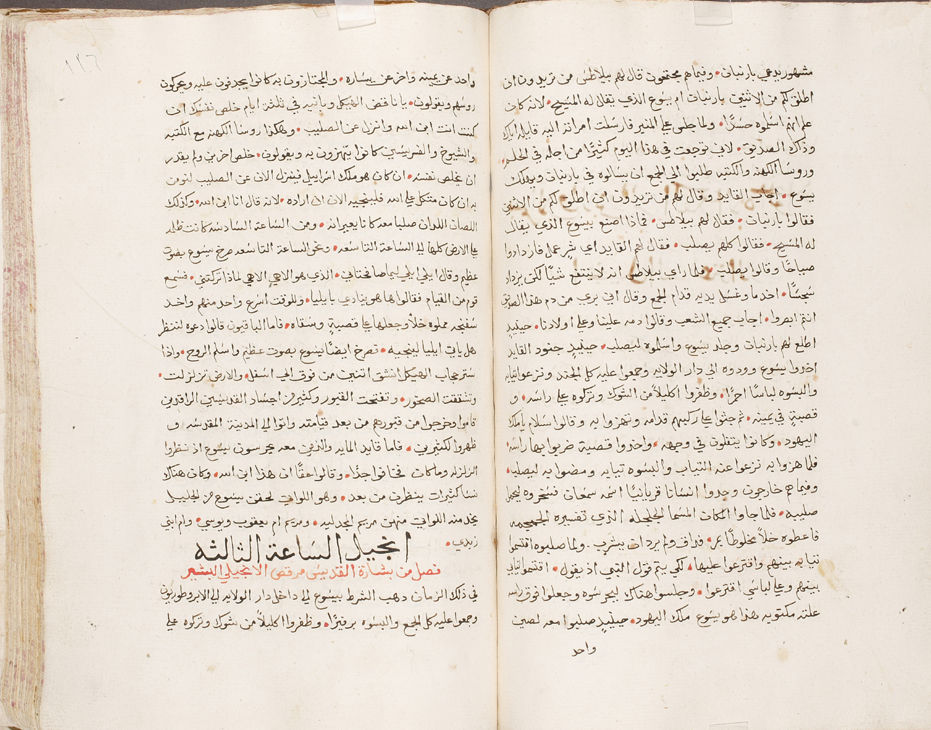 مشهور يدعي بارنبان • وفيما هم مجتمعون قال لهم بيلاطس من تريدون ان
اطلق لكم من الاثنين بارنبان ام يسوع الذي يقال له المسيح • لانه كان
علم انهم اسلموه حسدًا • ولما جلس علي المنبر فارسلت امراته اليه قايله اياك
وذاك الصديق • لاني توجعت في هذا اليوم كثيرًا من اجله في الحلم •
وروسا الكهنه والكتبه طلبوا الي الجمع ان يسالوه في بارنبان ويهلك
يسوع • اجاب القايد وقال لهم من تريدون ان اطلق لكم من الاثنين
فقالوا بارنبان • فقال لهم بيلاطس • فماذا اصنع بيسوع الذي يقال
له المسيح • فقالوا كلهم يصلب • فقال لهم القايد اي شر عمل فازدادوا
صياحًا وقالوا يصلب • فلما راي بيلاطس انه لا ينتفع شيًا لكن يزداد
سجسًا • اخد ما وغسل يديه قدام الجمع وقال اني بري من دم هذا الصديق
انتم ابصروا • اجاب جميع الشعب وقالوا دمه علينا وعلي اولادنا • حينيد
اطلع لهم بارنبان وجلد يسوع واسلموه ليصلب • حينيدٍ جنود القايد
اخدوا يسوع وودوه الي دار الولايه وجمعوا عليه كل الجند ونزعوا ثيابه
والبسوه لباسًا احمرًا • وظفروا اكليلًا من الشوك وتركوه علي راسه • و
قصبةٍ في يمينه • ثم جثوا علي ركبهم قدامه وتهزوا به وقالوا السلام يا ملك
اليهود • وكانوا يتفلون في وجهه • واخدوا قصبة ضربوا بها راسه
فلما هزوا به نزعوا عنه الثياب والبسوه ثيابه ومضوا به ليصلب •
وفيما هم خارجون وجدوا انسانًا قريانيًا اسمه سمعان فسخروه ليحمل
صليبه • فلما جاوا المكان المسما الجلجله الذي تفسيره الجمجمه
فاعطوه خلًا مخلوطًا بمر • فداق ولم يرد ان يشرب • ولما صلبوه اقتسموا
ثيابه بينهم واقترعوا عليها • لكي يتم قول النبي اذ يقول • اقتسموا ثيابي
بينهم وعلي لباسي اقترعوا • وجلسوا هناك ليحرسوه وجعلوا فوق راسه
علته مكتوبه هذا هو يسوع ملك اليهود • حينيدٍ صلبوا معه لصين
واحد
١٢٦
واحد عن يمينه واخر عن يساره • والمجتازون به كانوا يجدفون عليه ويحركون
روسهم ويقولون • يا ناقض الهيكل وبانيه في تلتة ايام خلص نفسك ان
كنت انت ابن الله وانزل عن الصليب • وهكذا روسا الكهنه مع الكتبه
والشيوخ والفريسيين كانوا يتهزون به ويقولون • خلص اخرين ولم يقدر
ان يخلص نفسه • ان كان هو ملك اسراييل فينزل الان عن الصليب لنومن
به ان كان متكل علي الله فلينجيه الان ان اراده • لانه قال انا ابن الله • وكذلك
اللصان اللدان صلبا معه كانا يعيرانه • ومن الساعة السادسه كانت ظلمه
علي الارض كلها الي الساعة التاسعه • ونحو الساعة التاسعه صرخ يسوع بصوت
عظيم وقال ايلي ايلي ليما صافختاني • الذي هو الاهي الاهي لماذا تركتني • فسمع
قوم من القيام فقالوا ها هو ينادي بايليا • وللوقت اسرع واحد منهم واخد
سفنجه مملوه خلًا وجعلها علي قصبةٍ وسقاه • فاما الباقيون قالوا دعوه لننظر
هل ياتي ايليا لينجيه • فصرخ ايضًا يسوع بصوت عظيم واسلم الروح • واذا
ستر حجاب الهيكل انشق اتنين من فوق الي اسفل • والارض تزلزلت •
وتشققت الصخور • وتفتحت القبور وكثير من اجساد القديسين الراقدين
قاموا وخرجوا من قبورهم من بعد قيامته واتوا الي المدينة المقدسه و
ظهروا لكثيرين • فاما قايد المايه والذين معه يحرسون يسوع اذ نظروا
الزلزله وما كان خافوا جدًا • وقالوا حقًا ان هذا ابن الله • وكان هناك
نسا كثيرات ينظرن من بعد • وهو اللواتي لحقن يسوع من الجليل
يخدمنه اللواتي منهن مريم المجدليه • ومريم ام يعقوب ويوسي • وام ابني
زبدي •
انجيل الساعة الثالثه
فصل من بشارة القديس مرقص الانجيلي البشير
في ذلك الزمان دهب الشرط بيسوع الي داخل دار الولايه الي الابروطوريون
وجمعوا عليه كل الجمع والبسوه برفيرًا • وظفروا اكليلًا من شوك وتركوه علي